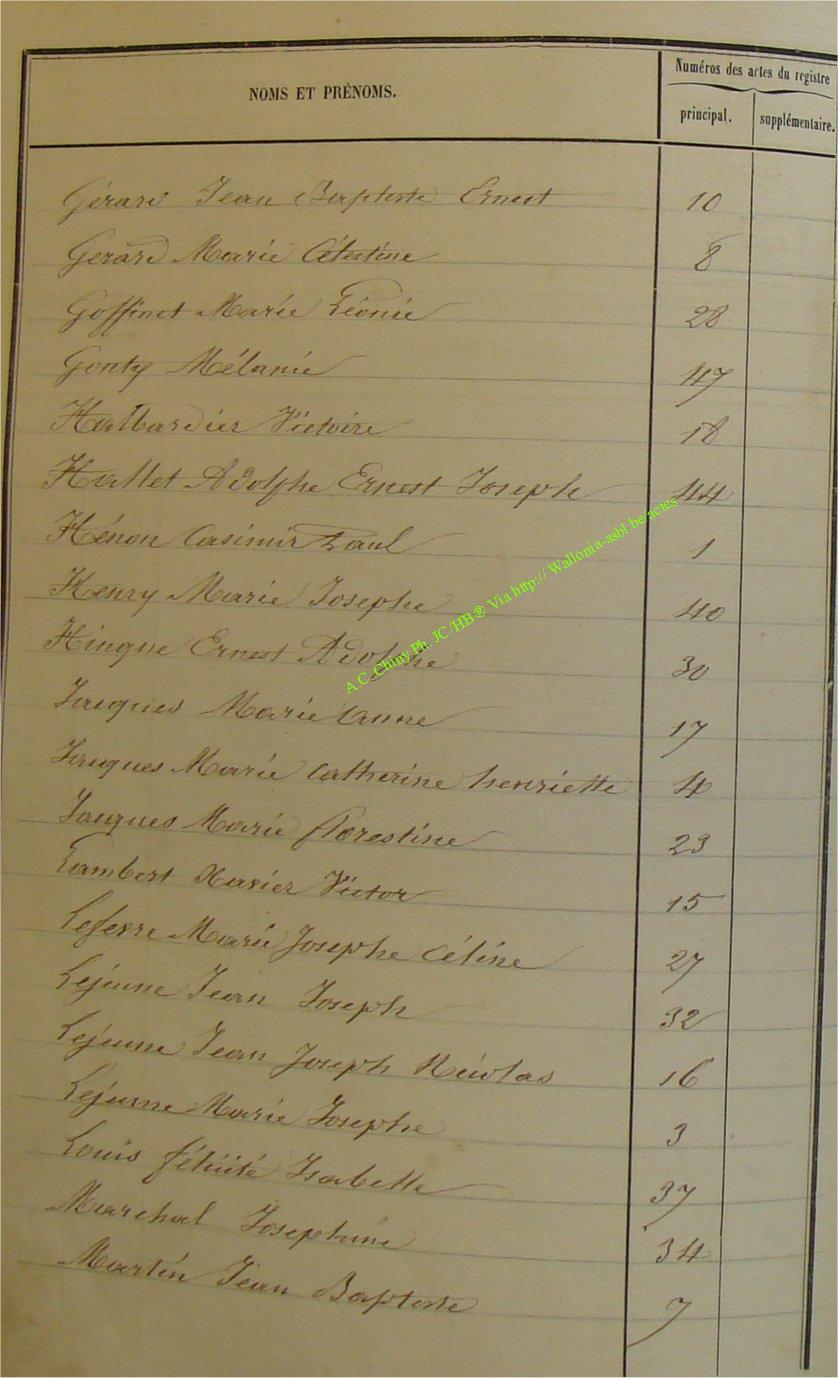 Numéros des actes du registre
NOMS ET PRÉNOMS.
principal. supplémentaire.
Gérard Jean Baptiste Ernest 10
Gerard Marie Célestine 8
Goffinet Marie Léonie 28
Gonty Mélanie 47
Hallbardier Victoire 18
Hallet Adolphe Ernest Joseph 44
Hénon Casimir Paul 1
Henry Marie Josephe 40
Hinque Ernest Adolphe 30
Jacques Marie Anne 17
Jacques Marie Catherine henriette 4
Jacques Marie florestine 23
Lambert Xavier Victor 15
Lefevre Marie Josephe Céline 27
Lejeune Jean Joseph 32
Lejeune Jean Joseph Nicolas 16
Lejeune Marie Josephe 3
Louis félicité Isabelle 37
Marchal Josephine 34
Martin Jean Baptiste 7
A.C. Chiny Ph. JC/HB® Via http:// Wallonia-asbl.be/actes